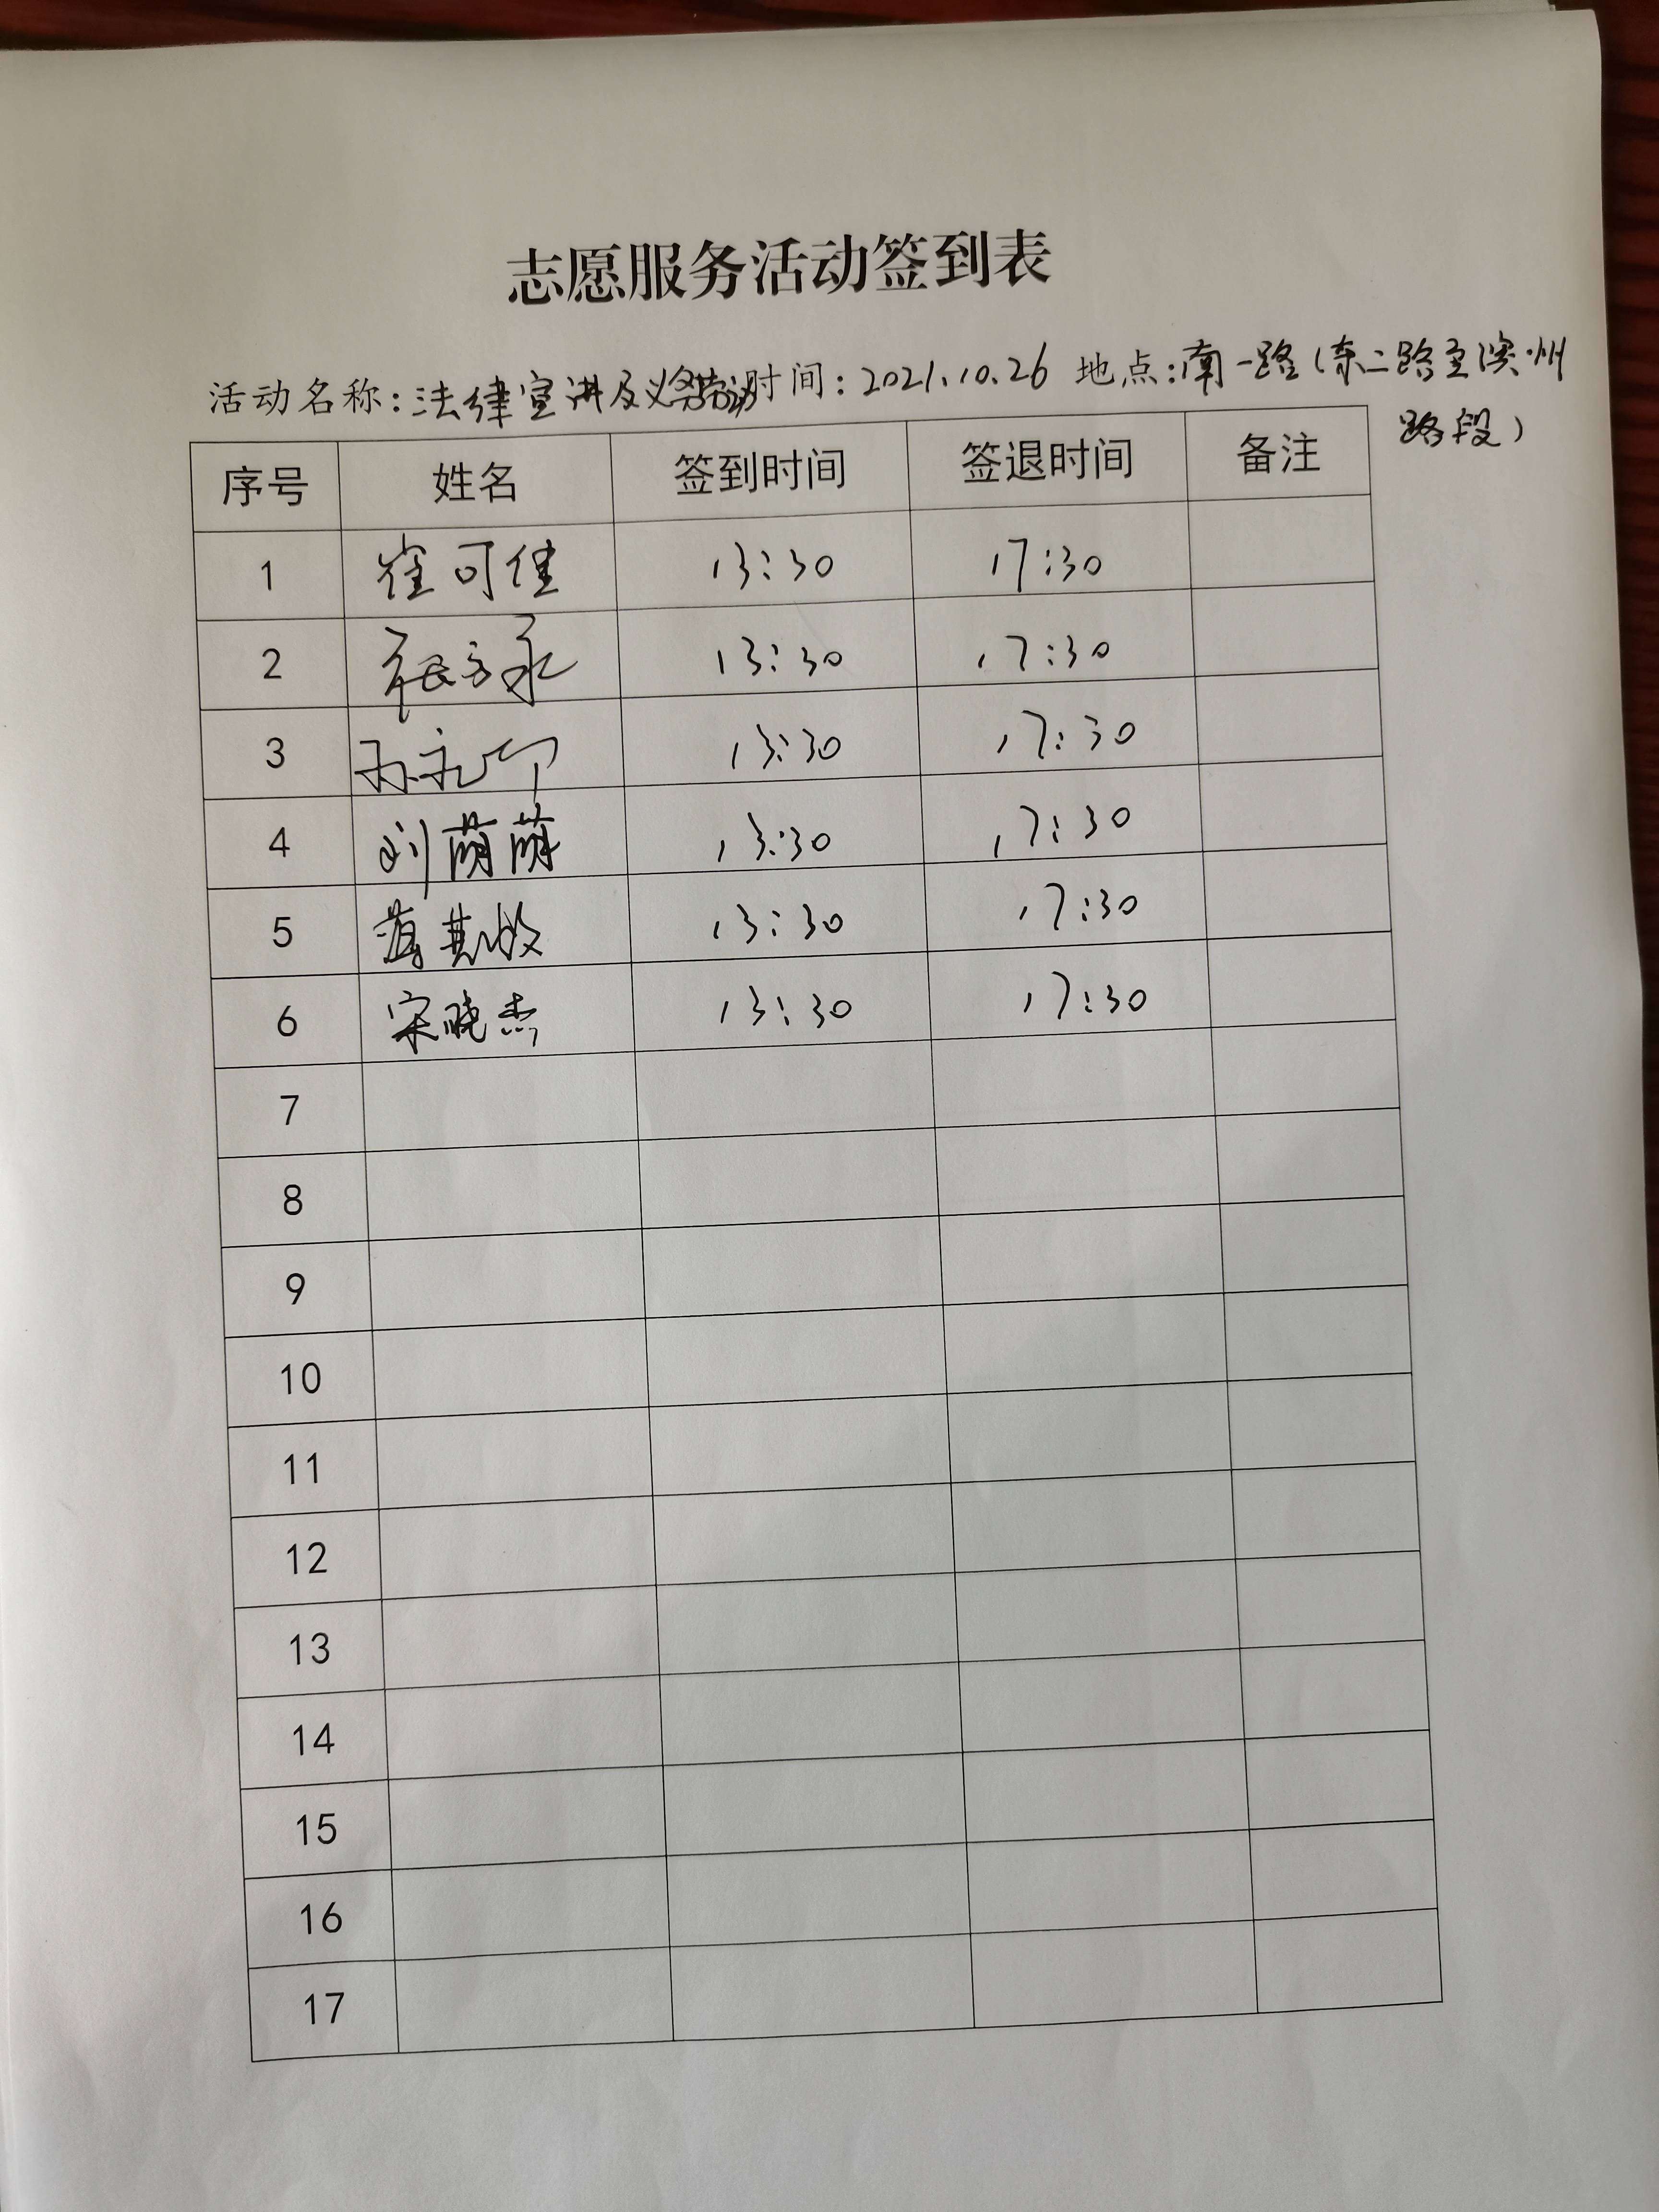 志愿服务活动签到表
活动名称:法律宣讲及义务劳动时间:2021.10.26 地点:南一路(东二路至滨州
路段)
序号 姓名 签到时间 签退时间 备注
1 崔可佳 13:30 17:30
2 13:30 17:30
3 13:30 17:30
4 刘萌萌 13:30 17:30
5 13:30 17:30
6 宋晓杰 13:30 17:30
7
8
9
10
11
12
13
14
15
16
17